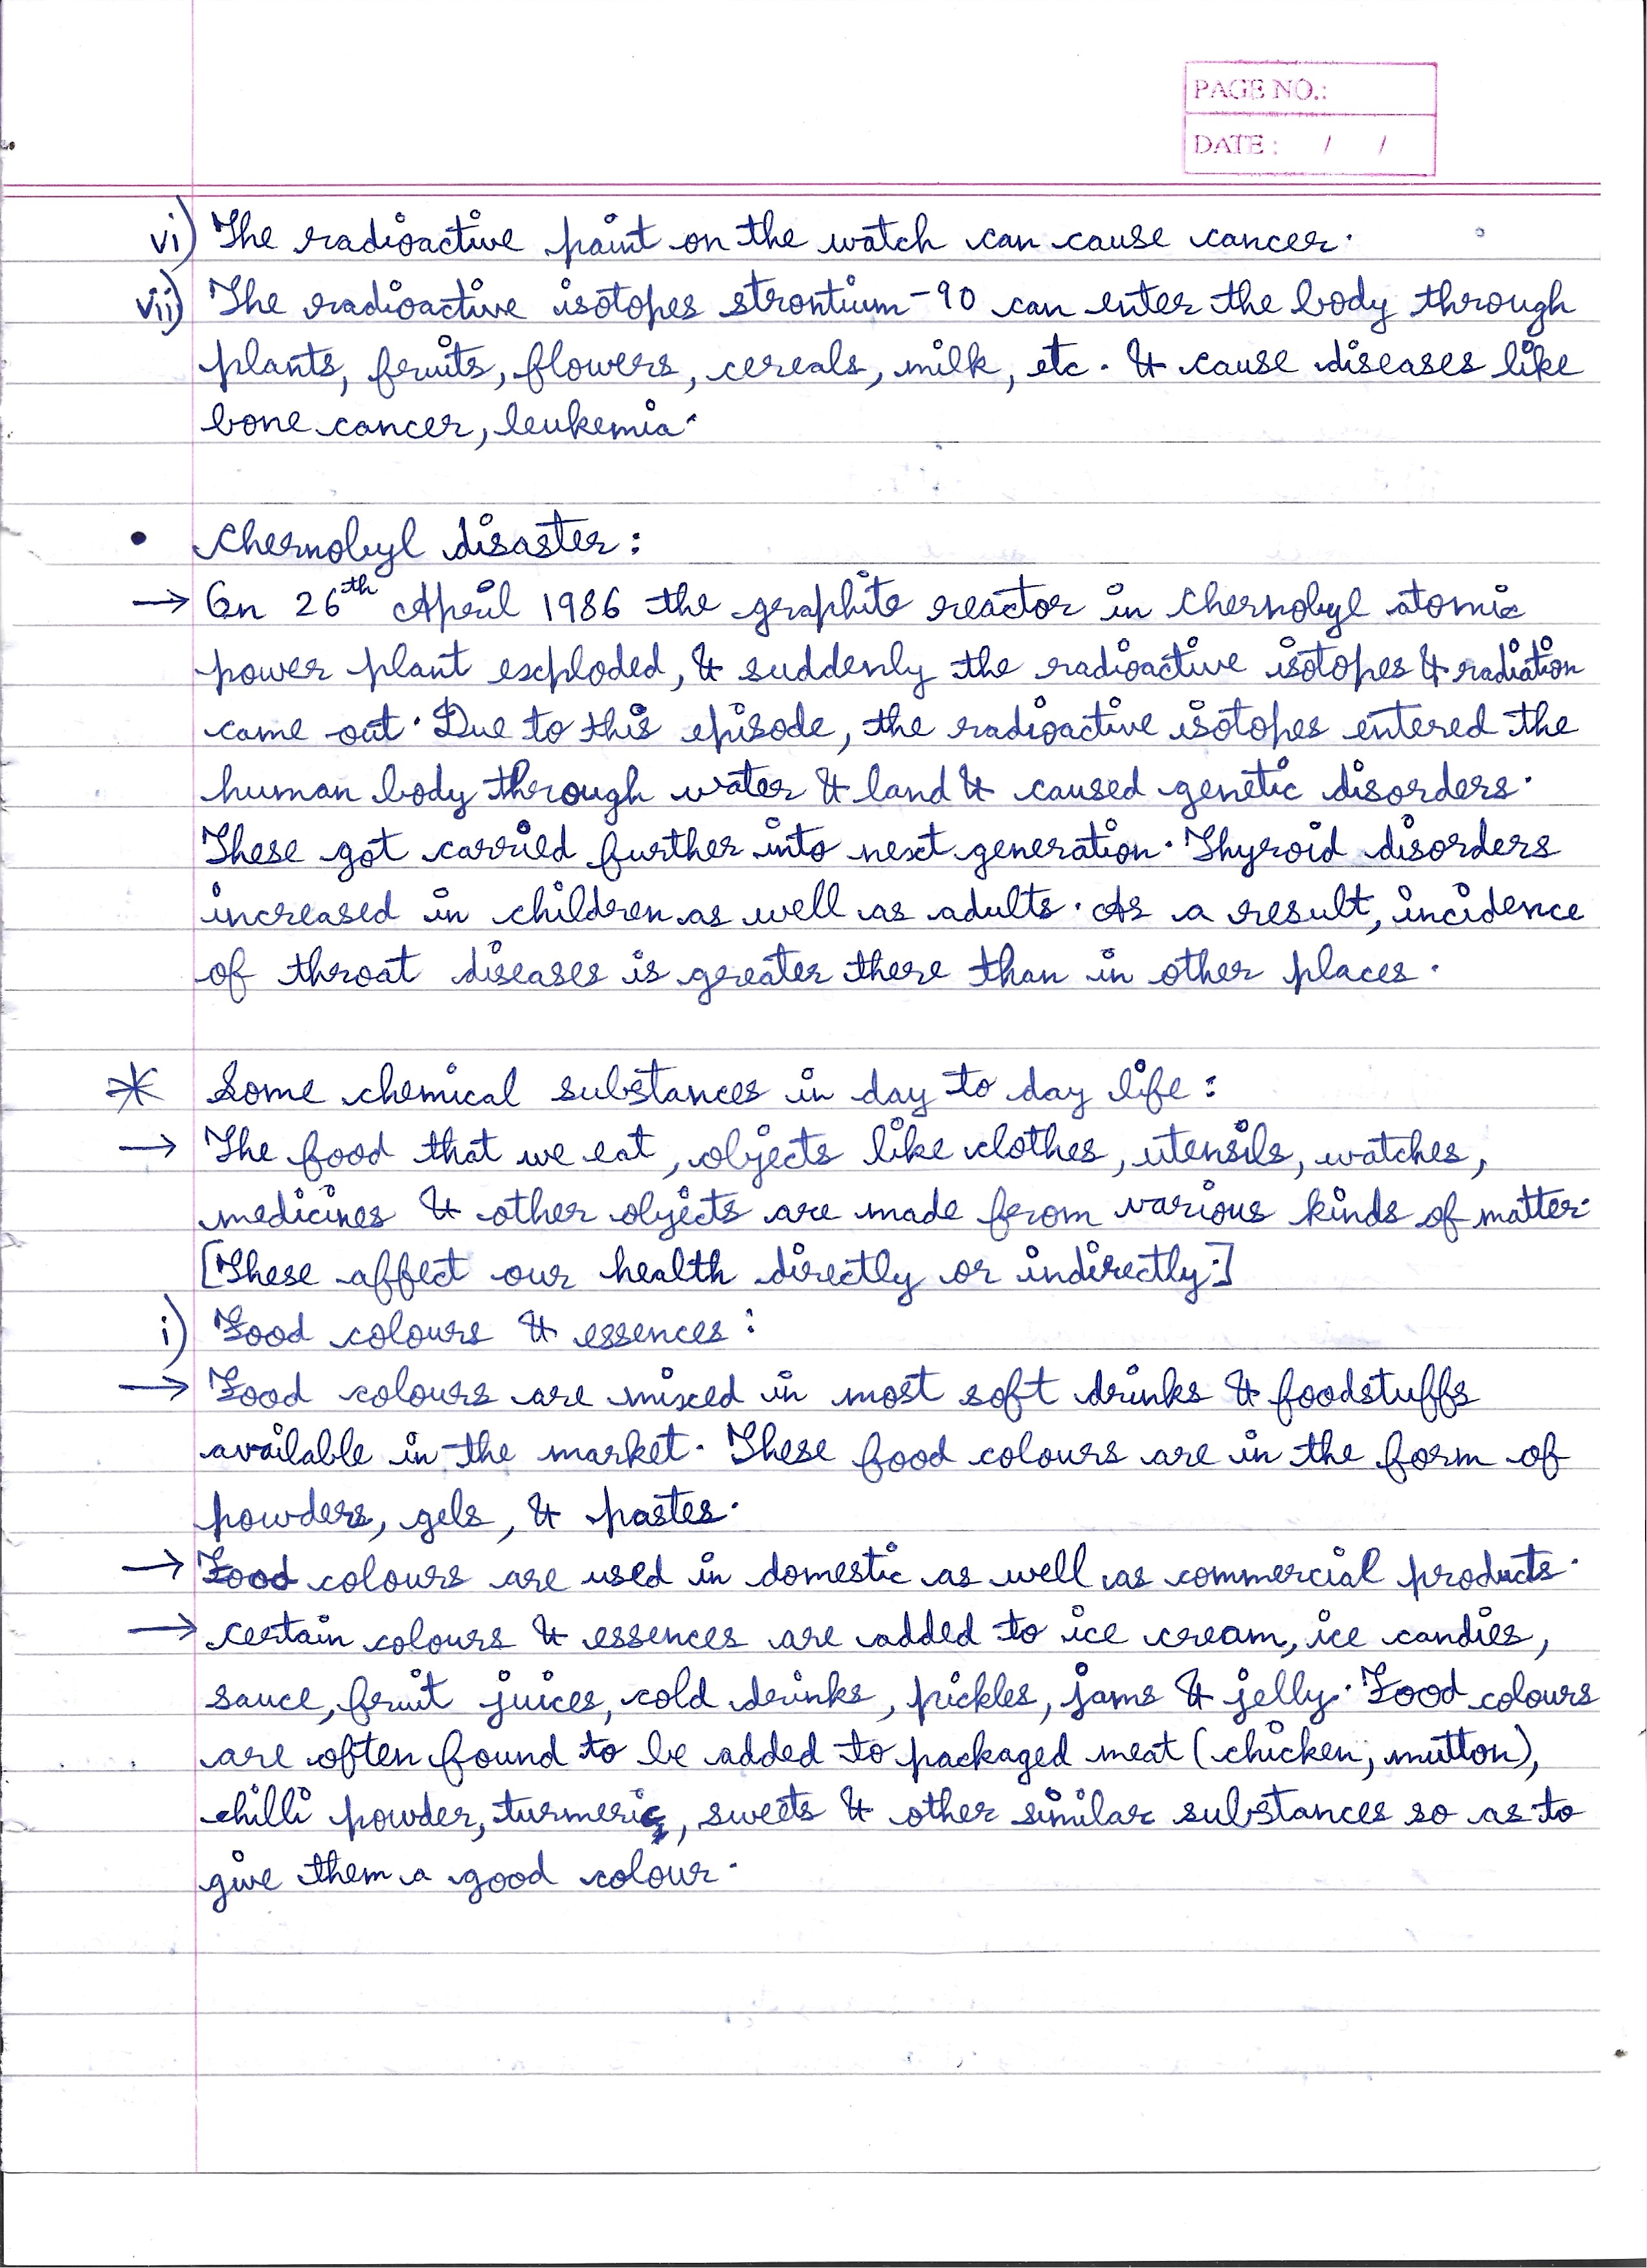 PAGE NO.:
DATE : / /
vi) The radioactive paint on the watch can cause cancer.
vii) The radioactive isotopes strontium-90 can enter the body through
plants, fruits, flowers, cereals, milk, etc. & cause diseases like
bone cancer, leukemia.
• Chernobyl disaster :
→ On 26th April 1986 the graphite reactor in Chernobyl atomic
power plant exploded, & suddenly the radioactive isotopes & radiation
came out. Due to this episode, the radioactive isotopes entered the
human body through water & land & caused genetic disorders.
These got carried further into next generation. Thyroid disorders
increased in children as well as adults. As a result, incidence
of throat diseases is greater there than in other places.
* Some chemical substances in day to day life :
→ The food that we eat, objects like clothes, utensils, watches,
medicines & other objects are made from various kinds of matter.
[These affect our health directly or indirectly.]
i) Food colours & essences :
→ Food colours are mixed in most soft drinks & foodstuffs
available in the market. These food colours are in the form of
powders, gels, & pastes.
→ Food colours are used in domestic as well as commercial products.
→ certain colours & essences are added to ice cream, ice candies,
sauce, fruit juices, cold drinks, pickles, jams & jelly. Food colours
are often found to be added to packaged meat (chicken, mutton),
chilli powder, turmeric, sweets & other similar substances so as to
give them a good colour.